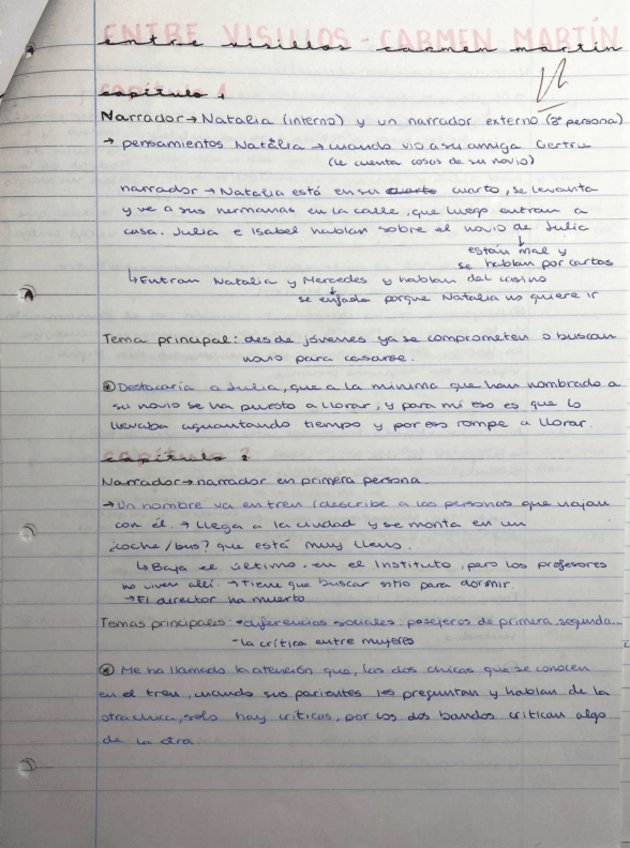 ENTRE VISILLOS - CARMEN MARTÍN
entre visillos carmen martín
capítulo 1
Narrador → Natalia (interno) y un narrador externo (3ª persona)
→ pensamientos Natalia → cuando vio a su amiga Gertru
(le cuenta cosas de su novio)
narrador → Natalia está en su cuarto cuarto, se levanta
y ve a sus hermanas en la calle, que luego entran a
casa. Julia e Isabel hablan sobre el novio de Julia
↓
están mal y
se hablan por cartas
↳ Entran Natalia y Mercedes y hablan del casino
↓
se enfada porque Natalia no quiere ir
Tema principal: desde jóvenes ya se comprometen o buscan
novio para casarse.
* Destacaría a Julia, que a la mínima que han nombrado a
su novio se ha puesto a llorar, y para mi eso es que lo
llevaba aguantando tiempo y por eso rompe a llorar.
capítulo 2
Narrador → narrador en primera persona.
→ Un hombre va en tren (describe a las personas que viajan
con él. → llega a la ciudad y se monta en un
¿coche/bus? que está muy lleno.
↳ Baja el último, en el Instituto, pero los profesores
no viven allí. → Tiene que buscar sitio para dormir.
→ El director ha muerto
Temas principales: • diferencias sociales: pasajeros de primera, segunda...
- la crítica entre mujeres
* Me ha llamado la atención que, las dos chicas que se conocen
en el tren, cuando sus parientes les preguntan y hablan de la
otra chica, solo hay críticas, por los dos bandos critican algo
de la otra.